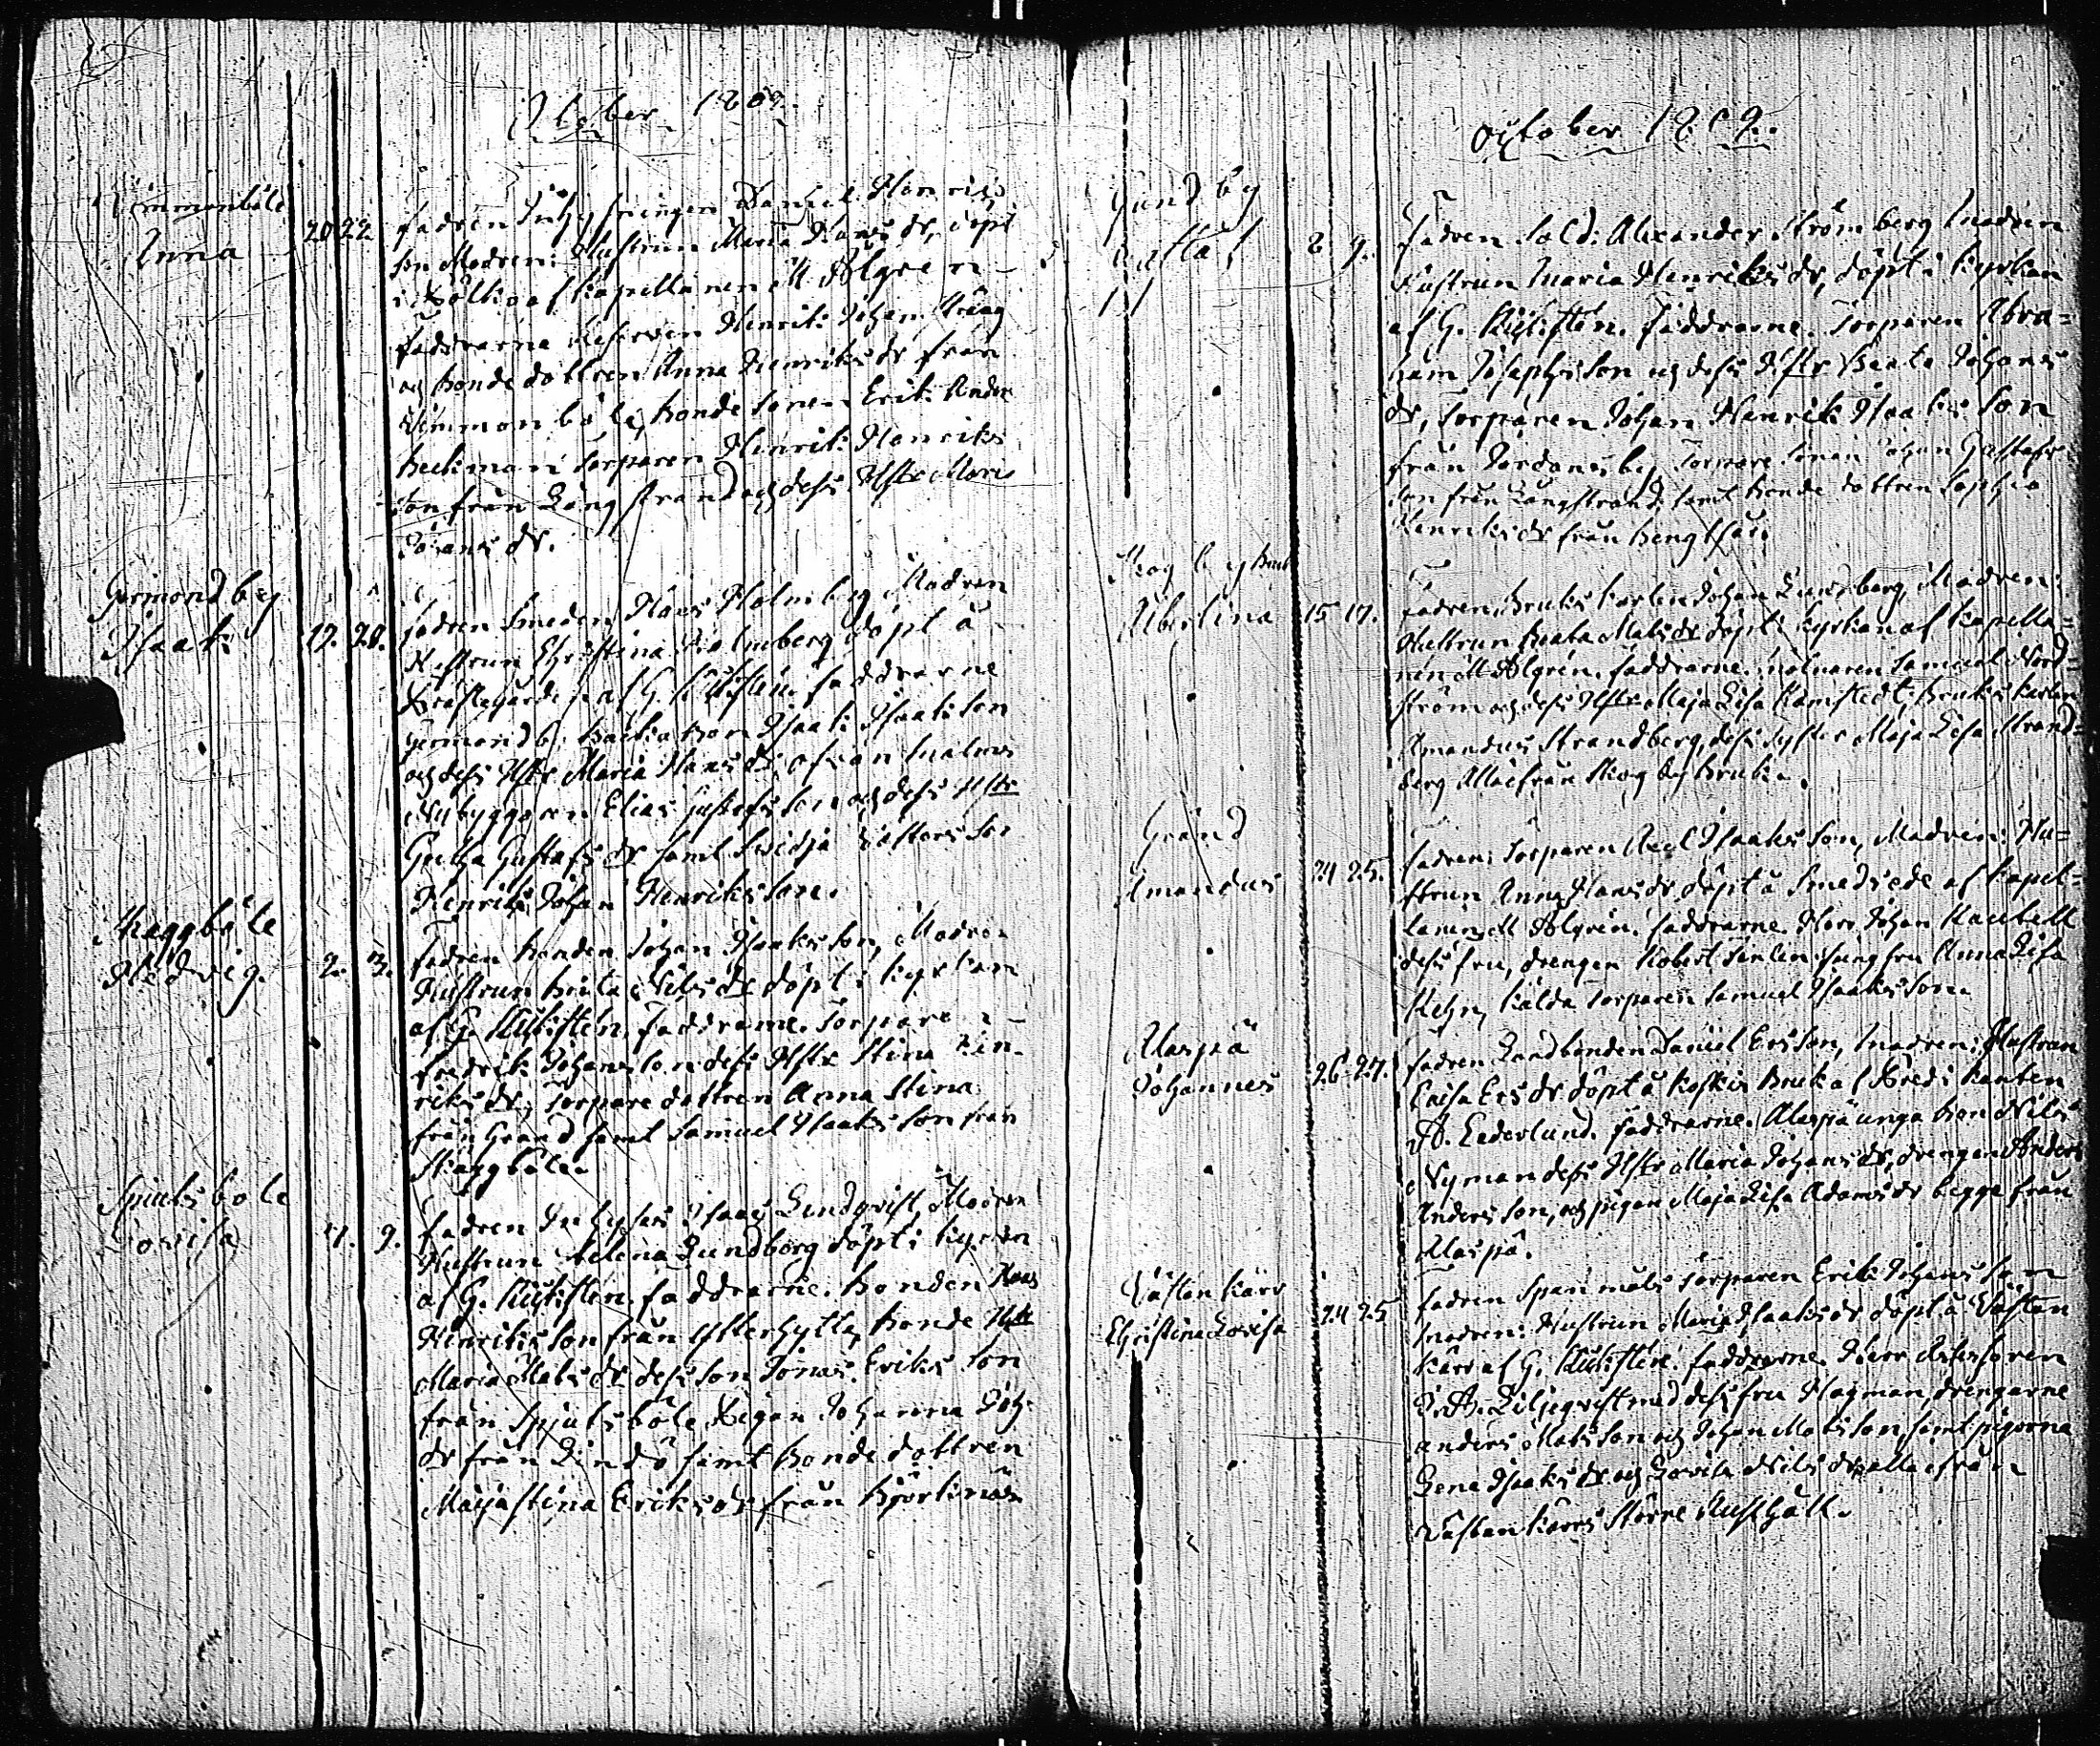 October 1809.
Rimmanböle
Anna 20 22.
fadren Inhy dringen Daniel Henriks
son Modren: Hustrun Maria Hans dr, döpt
i af Kapellanen M Ahlgren
Faddrarne Johan
och bonde dottren Anna Henriks dr från
Rimmanböle, bonde sonen Erik Anders
Backman torparen Henrik Henriks
son från Långstrand och dess Hstr Maria
Johans dr.
Germundby
Isaak 19. 20.
fadren Smeden Hans Holmberg Modren
Hustrun Christina Holmberg döpt å
Prästegården af G. faddrarne
Germundby Isaak Isaaksson
och dess Hstr Maria Hans dr, från Malms
Nybyggaren Elias Gustafs son och dess Hstr
Greta Gustafs dr samt
Henrik Johan Henriksson.
Skaggböle
Hedvig. 2. 3.
Fadren bonden Johan Isaaksson, Modren
Hustrun Brita Nils dr döpt i Kyrkan
af G. Faddrarne. Torparen
Fredrik Johansson dess Hstr Stina Hin-
riks dr, Torpare dottren Anna Stina
från Grand samt Samuel Isaaksson från
Skaggböle.
Spjutsböle
Lovisa 4. 9.
fadren Inhyses Isaac Lindqvist, Modren
Hustrun Helena Lundborg döpt i Kyrkan
af G. faddrarne. bonden Hans
Henriksson från Ytterhytta, bonde Hstr
Maria Mats dr dess son Jonas Eriks son
från Spjutsböle, Pigan Johanna Joh:
dr från Lindö samt bonde dottren
Maja Stina Eriks dr från Björknäs
October 1809.
Gundby
Gustaf 8 9.
Fadren Sold: Alexander Strömberg Modren
Hustrun Maria Henriks dr, döpt i Kyrkan
af G. Faddrarne. Torparen Abra=
ham Josephsson och dess Hstr Beata Johans
dr, Torparen Johan Henrik Isaks son
från Jordansby Torpare sonen Johan Gustafs
son från Långstrand samt bonde dottren Sophia
Henriks dr från Bengtsår.
Skogby bruk
Albertina 15 17.
Fadren, Bruks karlen Johan Lundberg, Modren:
Hustrun Beata Mats dr döpt i Kyrkan af Kapella=
nen M Ahlgren. faddrarne. mölnaren Samuel Nord=
ström och dess Hstr Maja Lisa Bruks karlen
Amandus Strandberg, dess Syster Maja Lisa Strand=
berg Alla från Skogby Bruk.
Grand
Amandus 24 25.
fadren: torparen Axel Isaaksson, Modren: Hu=
strun Anna Hans dr döpt å Smedsede af Kapel=
lanen M Ahlgren. faddrarne. Herr Johan
dess fru, drengen Robert jungfru Anna Lisa
torparen Samuel Isaaksson.
Alaspä
Johannes 26 27.
fadren Landbonden Daniel Ersson, Modren: Hustrun
Caisa Ers dr döpt å Koskis Bruk af Predikanten
A. Cederlund. faddrarne. Alaspä unga bon Nils
Nyman dess Hstr Maria Johans dr, drengen Anders
Andersson, och pigan Maja Lisa Adams dr begge från
Alaspä.
Västankärr
Christina Lovisa 24 25
fadren Spanmåls torparen Erik Johansson
modren: Hustrun Maria Isaaks dr döpt å Västan
kärr af G. faddrarne. Herr
J. A. Liljeqvist med dess fru Hagman, drengarne
Anders Matsson och Johan Matsson samt pigorna
Lena Isaaks dr och Lovisa Nils dr alla från
Västankärr Större Rusthåll.